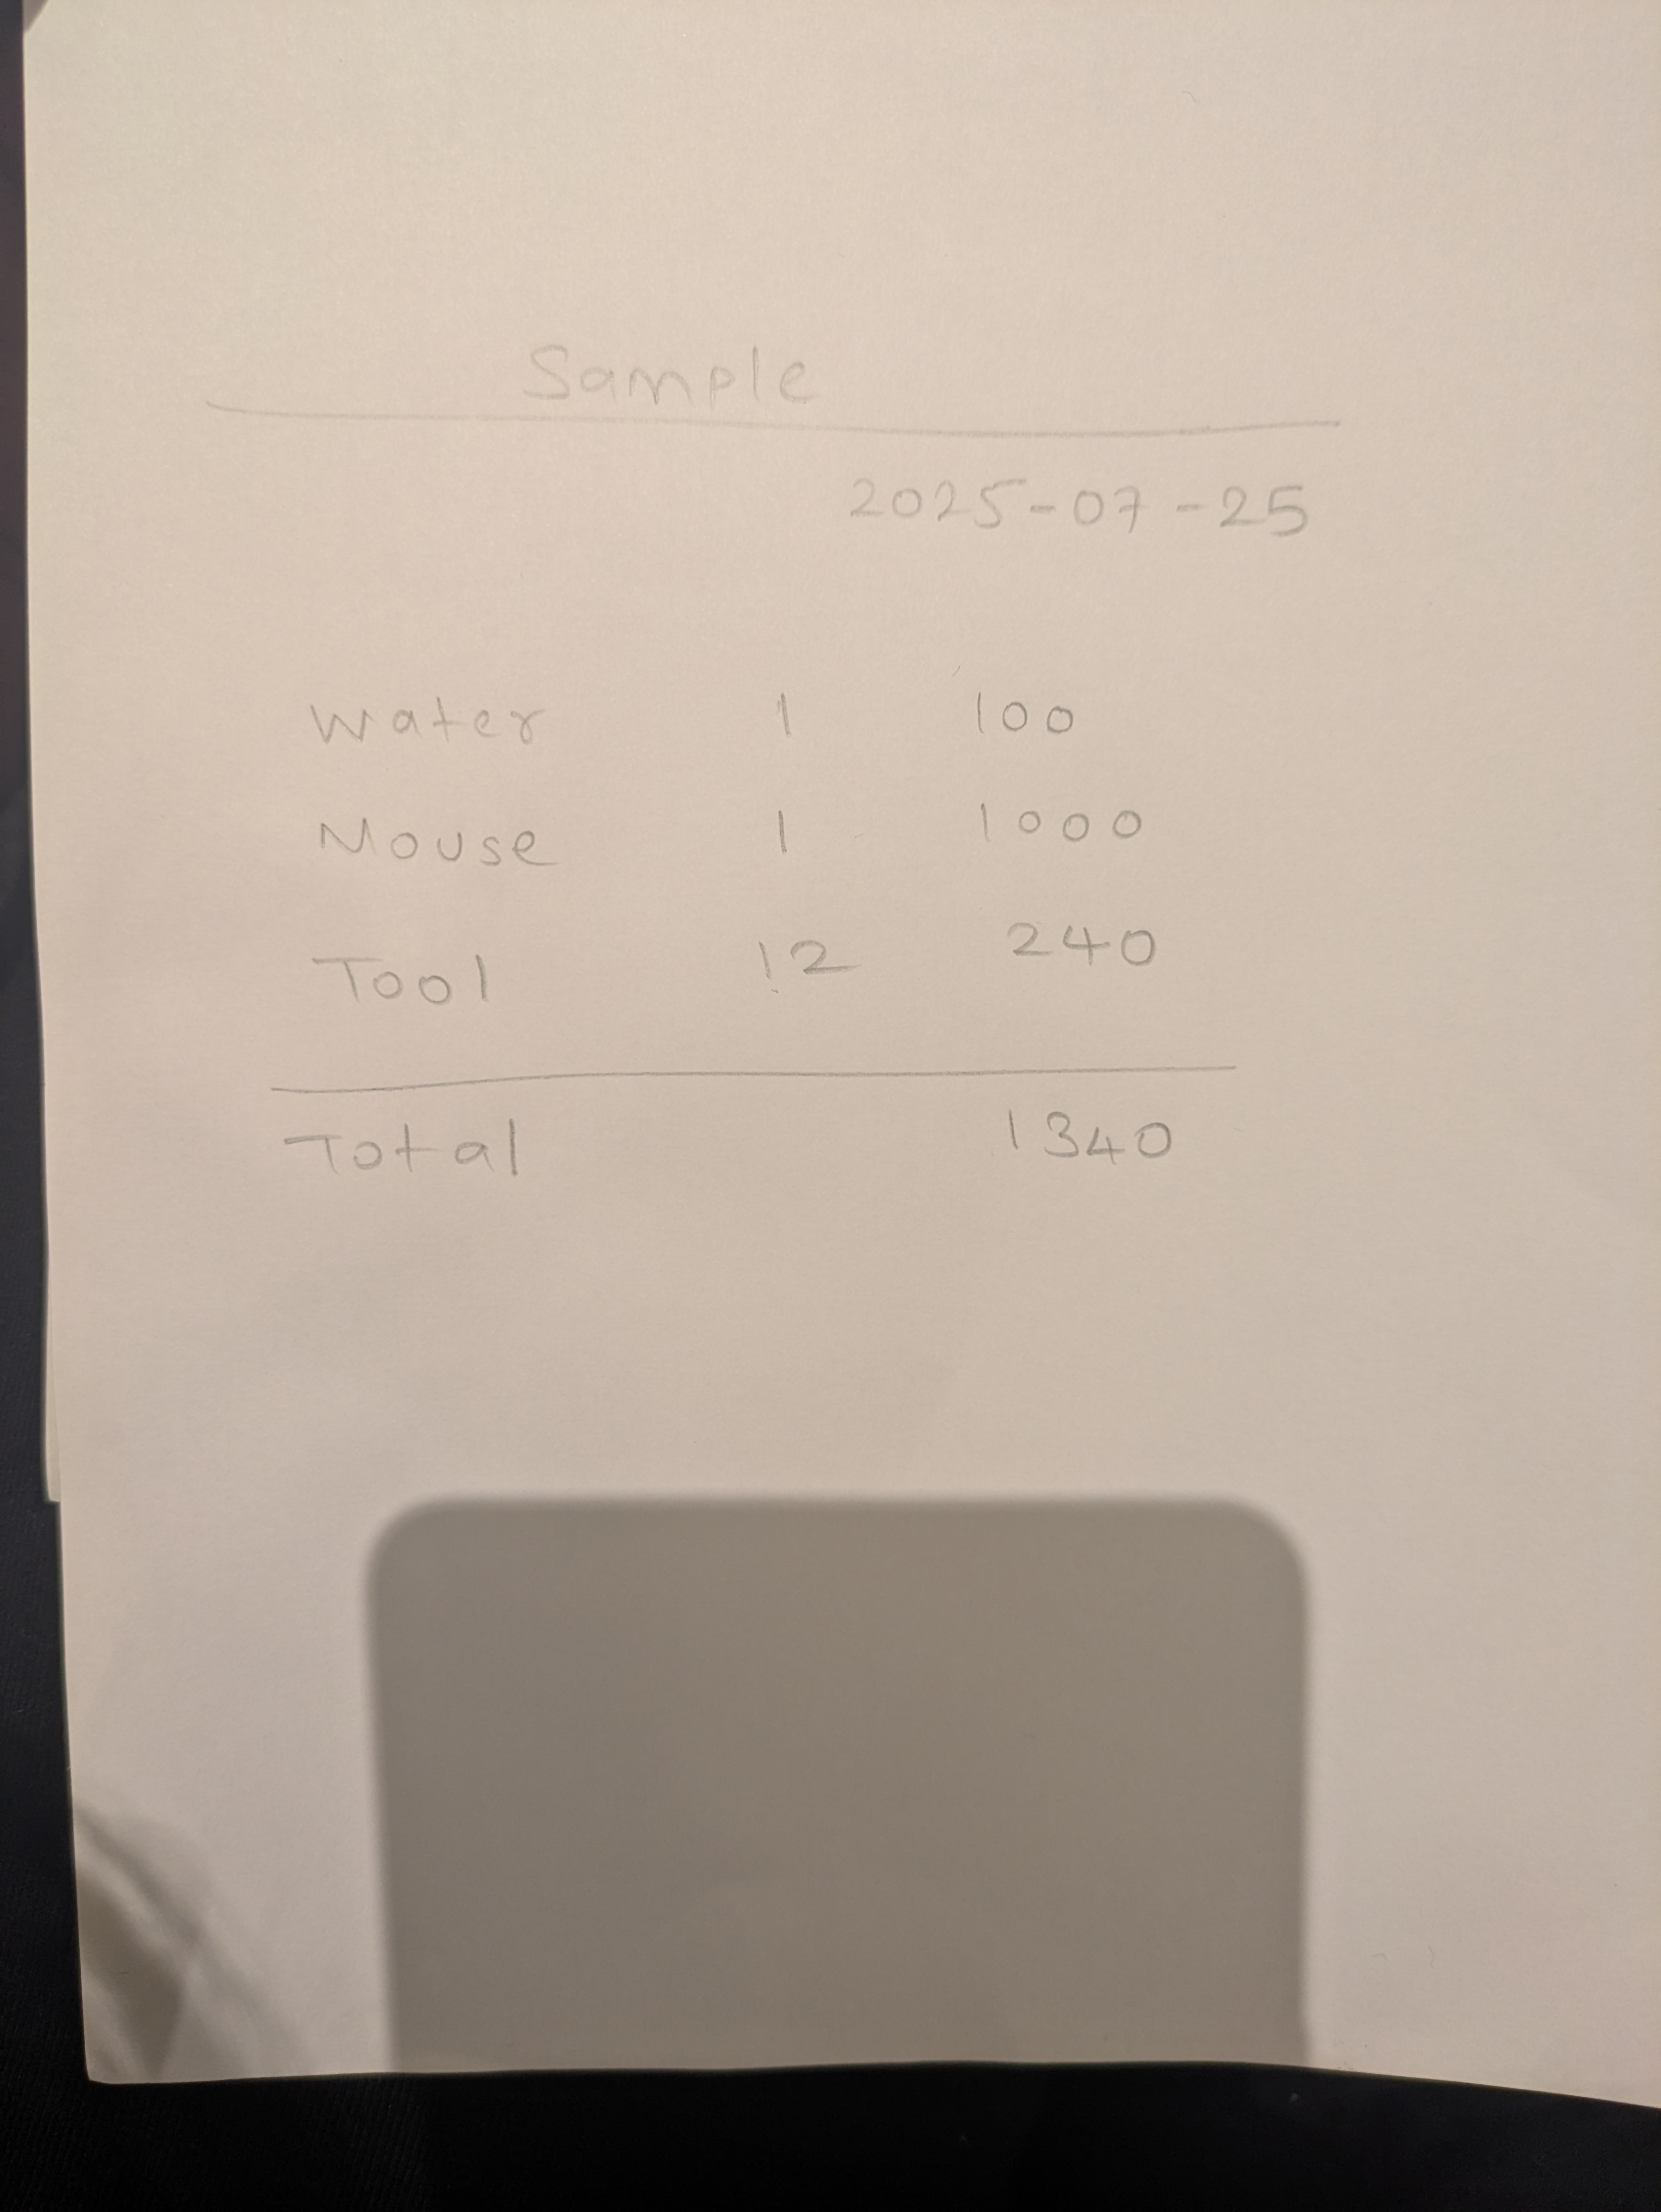 Sample
2025-07-25
Water 1 100
Mouse 1 1000
Tool 12 240
Total 1340